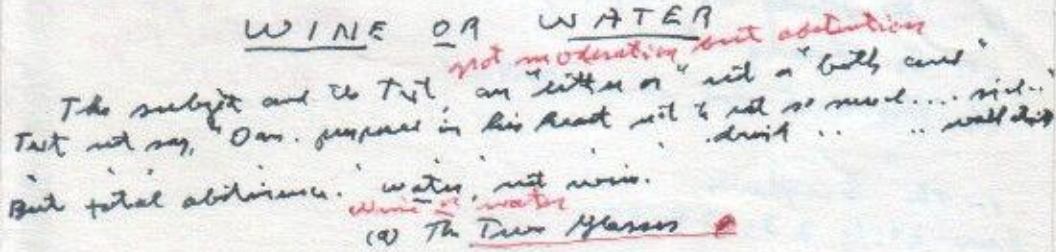 WINE OR WATER
not moderation but abstention
The subject and the Text, an "either or" not a "both and"
Text not say, "Dan. purposed in his heart not to eat so much.... rich..
drink .. ..
But total abstinence. water, not wine.
Wine or water
(a) The Two Glasses